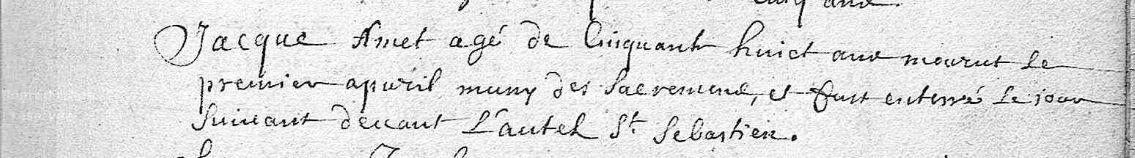 Jacque Amet agé de Cinquant huict ans mourut le
premier apuril muny des Sacremens, et fust enterré le jour
Suiuant deuant L'autel St Sebastien.